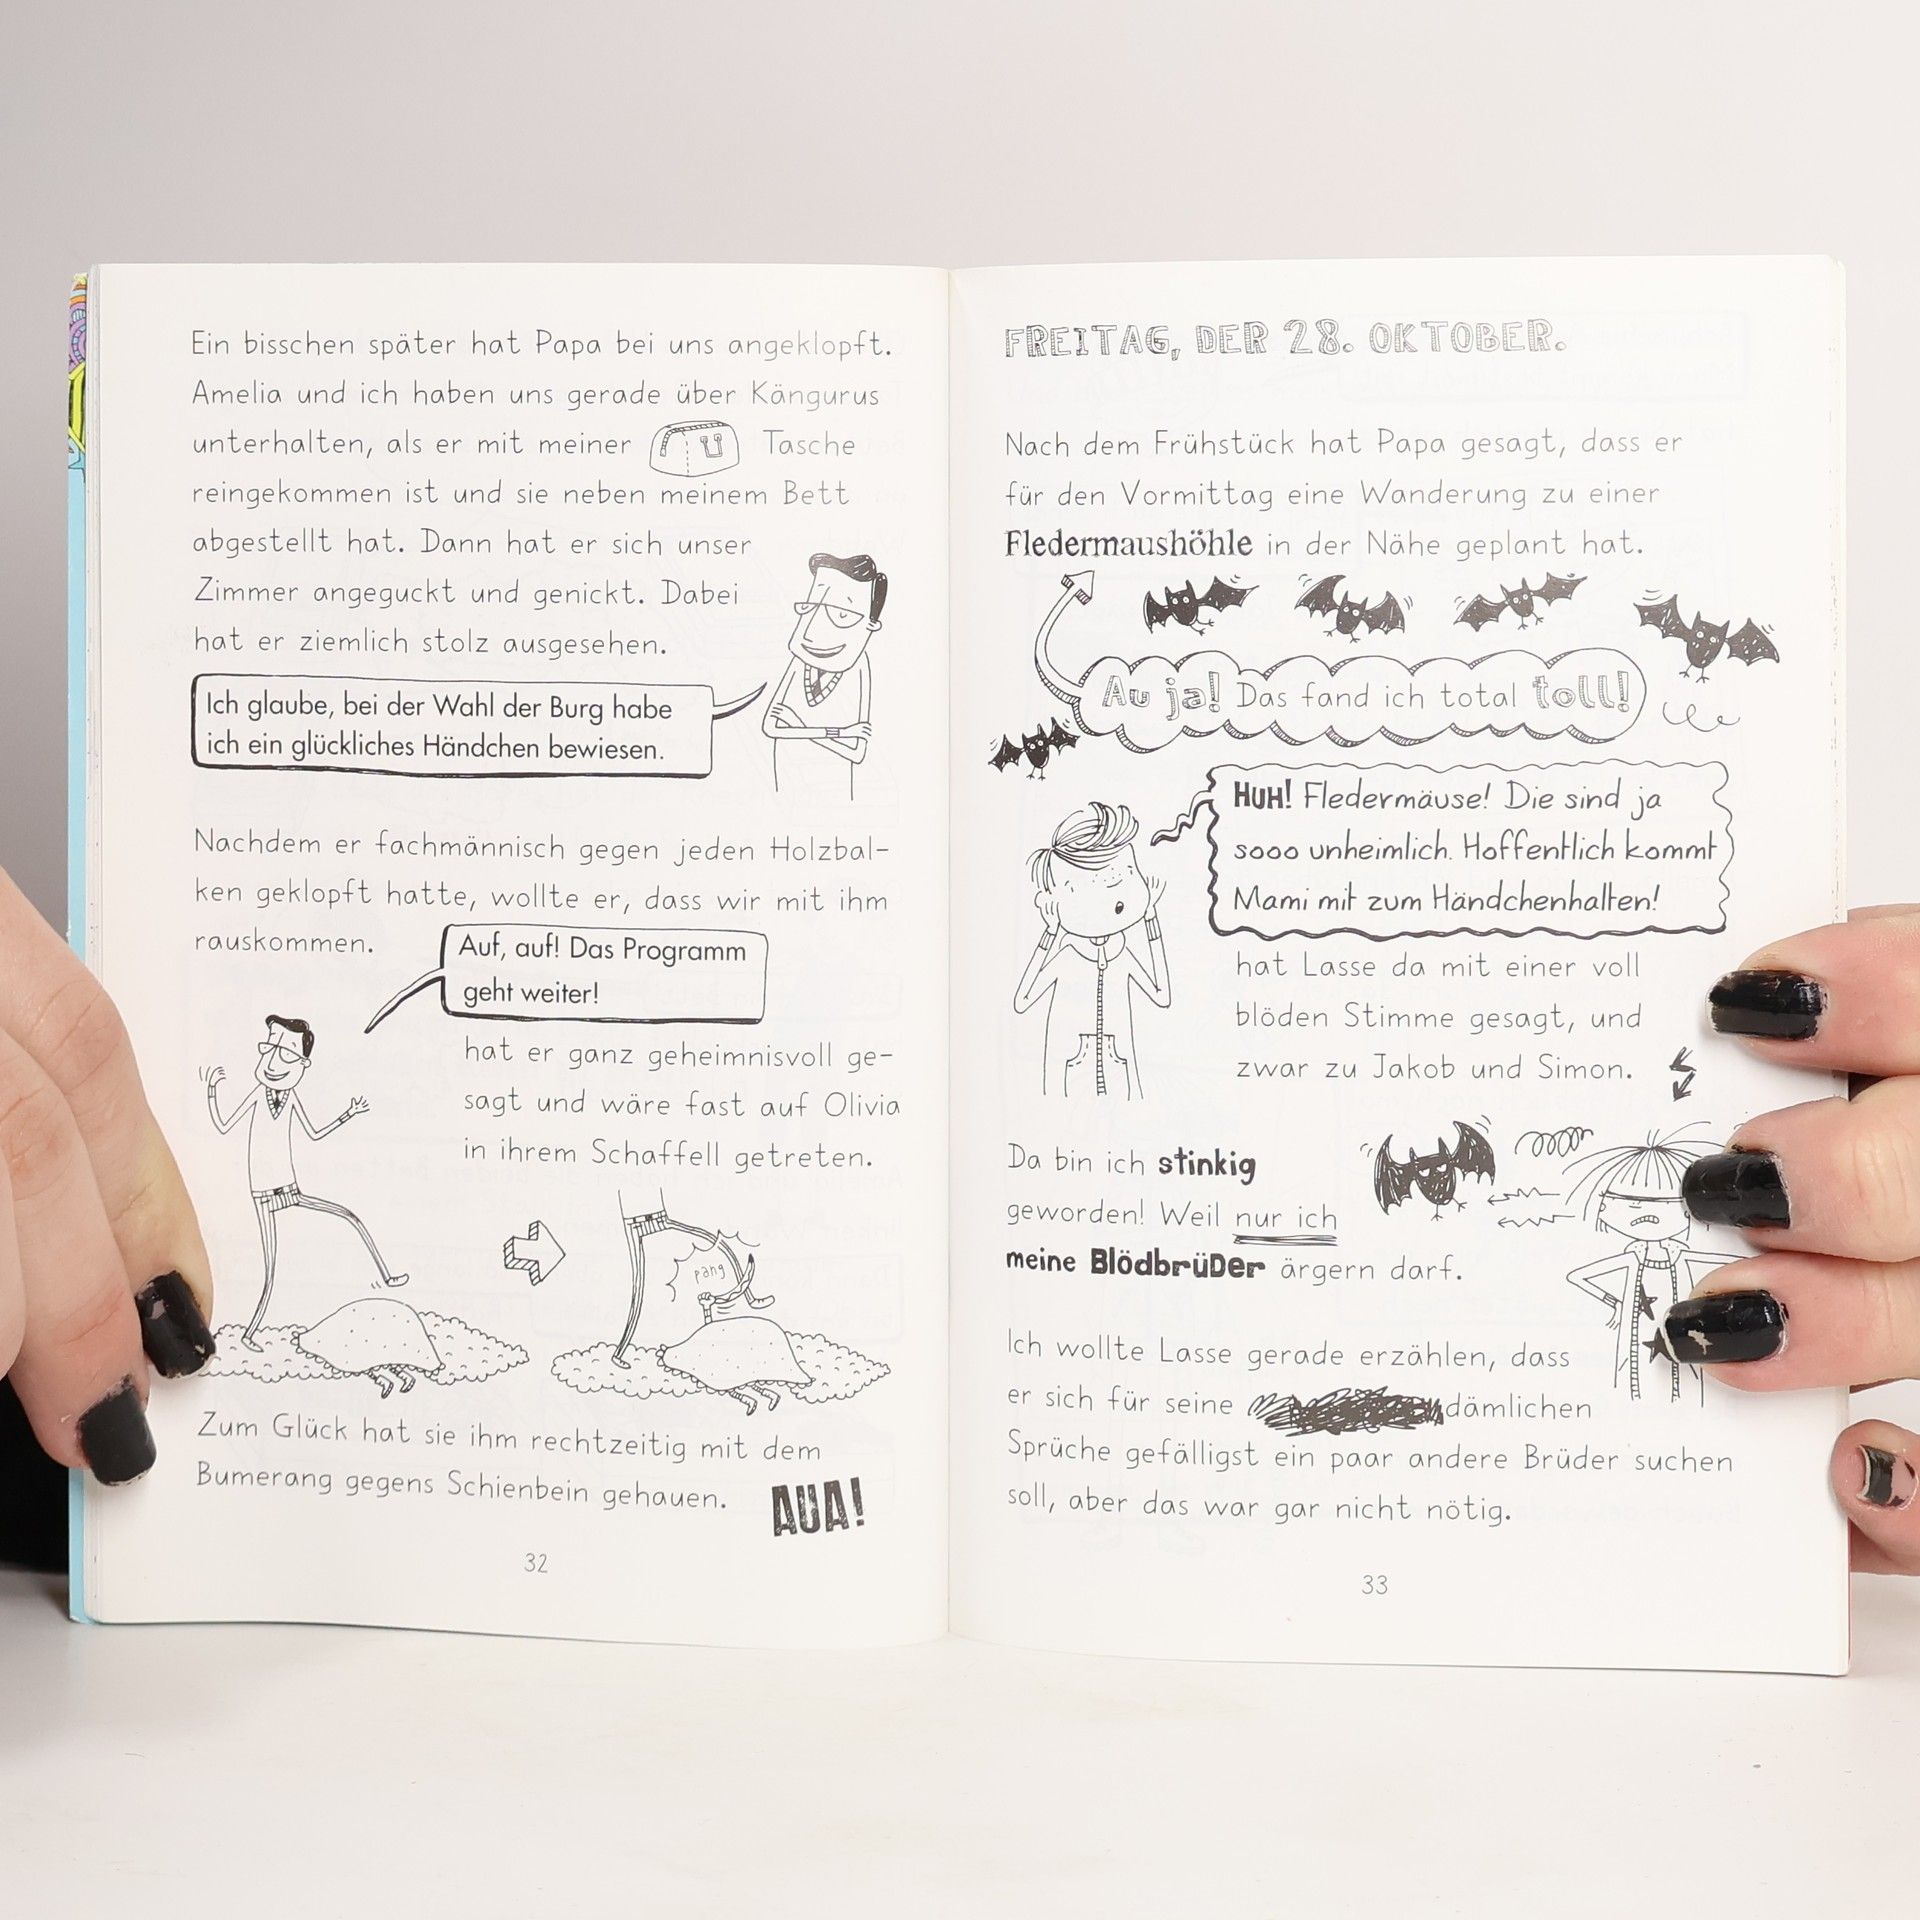 Ein bisschen später hat Papa bei uns angeklopft.
Amelia und ich haben uns gerade über Kängurus
unterhalten, als er mit meiner Tasche
reingekommen ist und sie neben meinem Bett
abgestellt hat. Dann hat er sich unser
Zimmer angeguckt und genickt. Dabei
hat er ziemlich stolz ausgesehen.
Ich glaube, bei der Wahl der Burg habe
ich ein glückliches Händchen bewiesen.
Nachdem er fachmännisch gegen jeden Holzbal-
ken geklopft hatte, wollte er, dass wir mit ihm
rauskommen.
Auf, auf! Das Programm
geht weiter!
hat er ganz geheimnisvoll ge-
sagt und wäre fast auf Olivia
in ihrem Schaffell getreten.
pang
Zum Glück hat sie ihm rechtzeitig mit dem
Bumerang gegens Schienbein gehauen.
AUA!
32
FREITAG, DER 28. OKTOBER.
Nach dem Frühstück hat Papa gesagt, dass er
für den Vormittag eine Wanderung zu einer
Fledermaushöhle in der Nähe geplant hat.
Au ja! Das fand ich total toll!
HUH! Fledermäuse! Die sind ja
sooo unheimlich. Hoffentlich kommt
Mami mit zum Händchenhalten!
hat Lasse da mit einer voll
blöden Stimme gesagt, und
zwar zu Jakob und Simon.
Da bin ich stinkig
geworden! Weil nur ich
meine Blödbrüder ärgern darf.
Ich wollte Lasse gerade erzählen, dass
er sich für seine dämlichen
Sprüche gefälligst ein paar andere Brüder suchen
soll, aber das war gar nicht nötig.
33